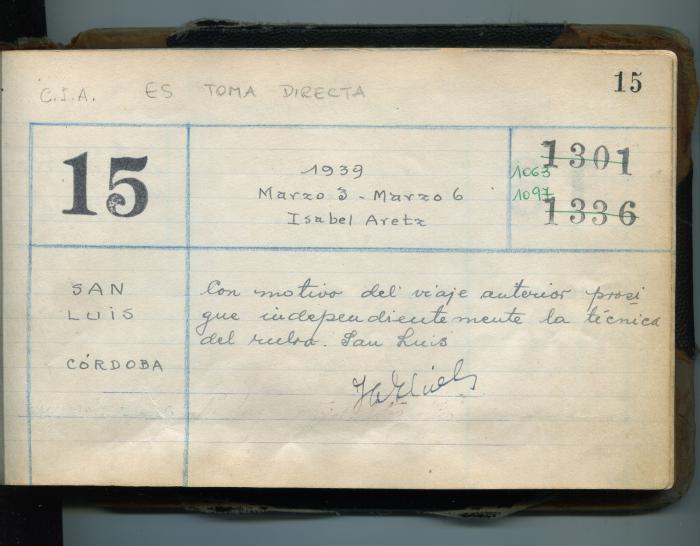 C.I.A. ES TOMA DIRECTA
15
15
1939
Marzo 3 - Marzo 6
Isabel Aretz
1301
1063
1097
1336
SAN
LUIS
CÓRDOBA
Con motivo del viaje anterior prosi
gue independientemente la técnica
del rubro. San Luis